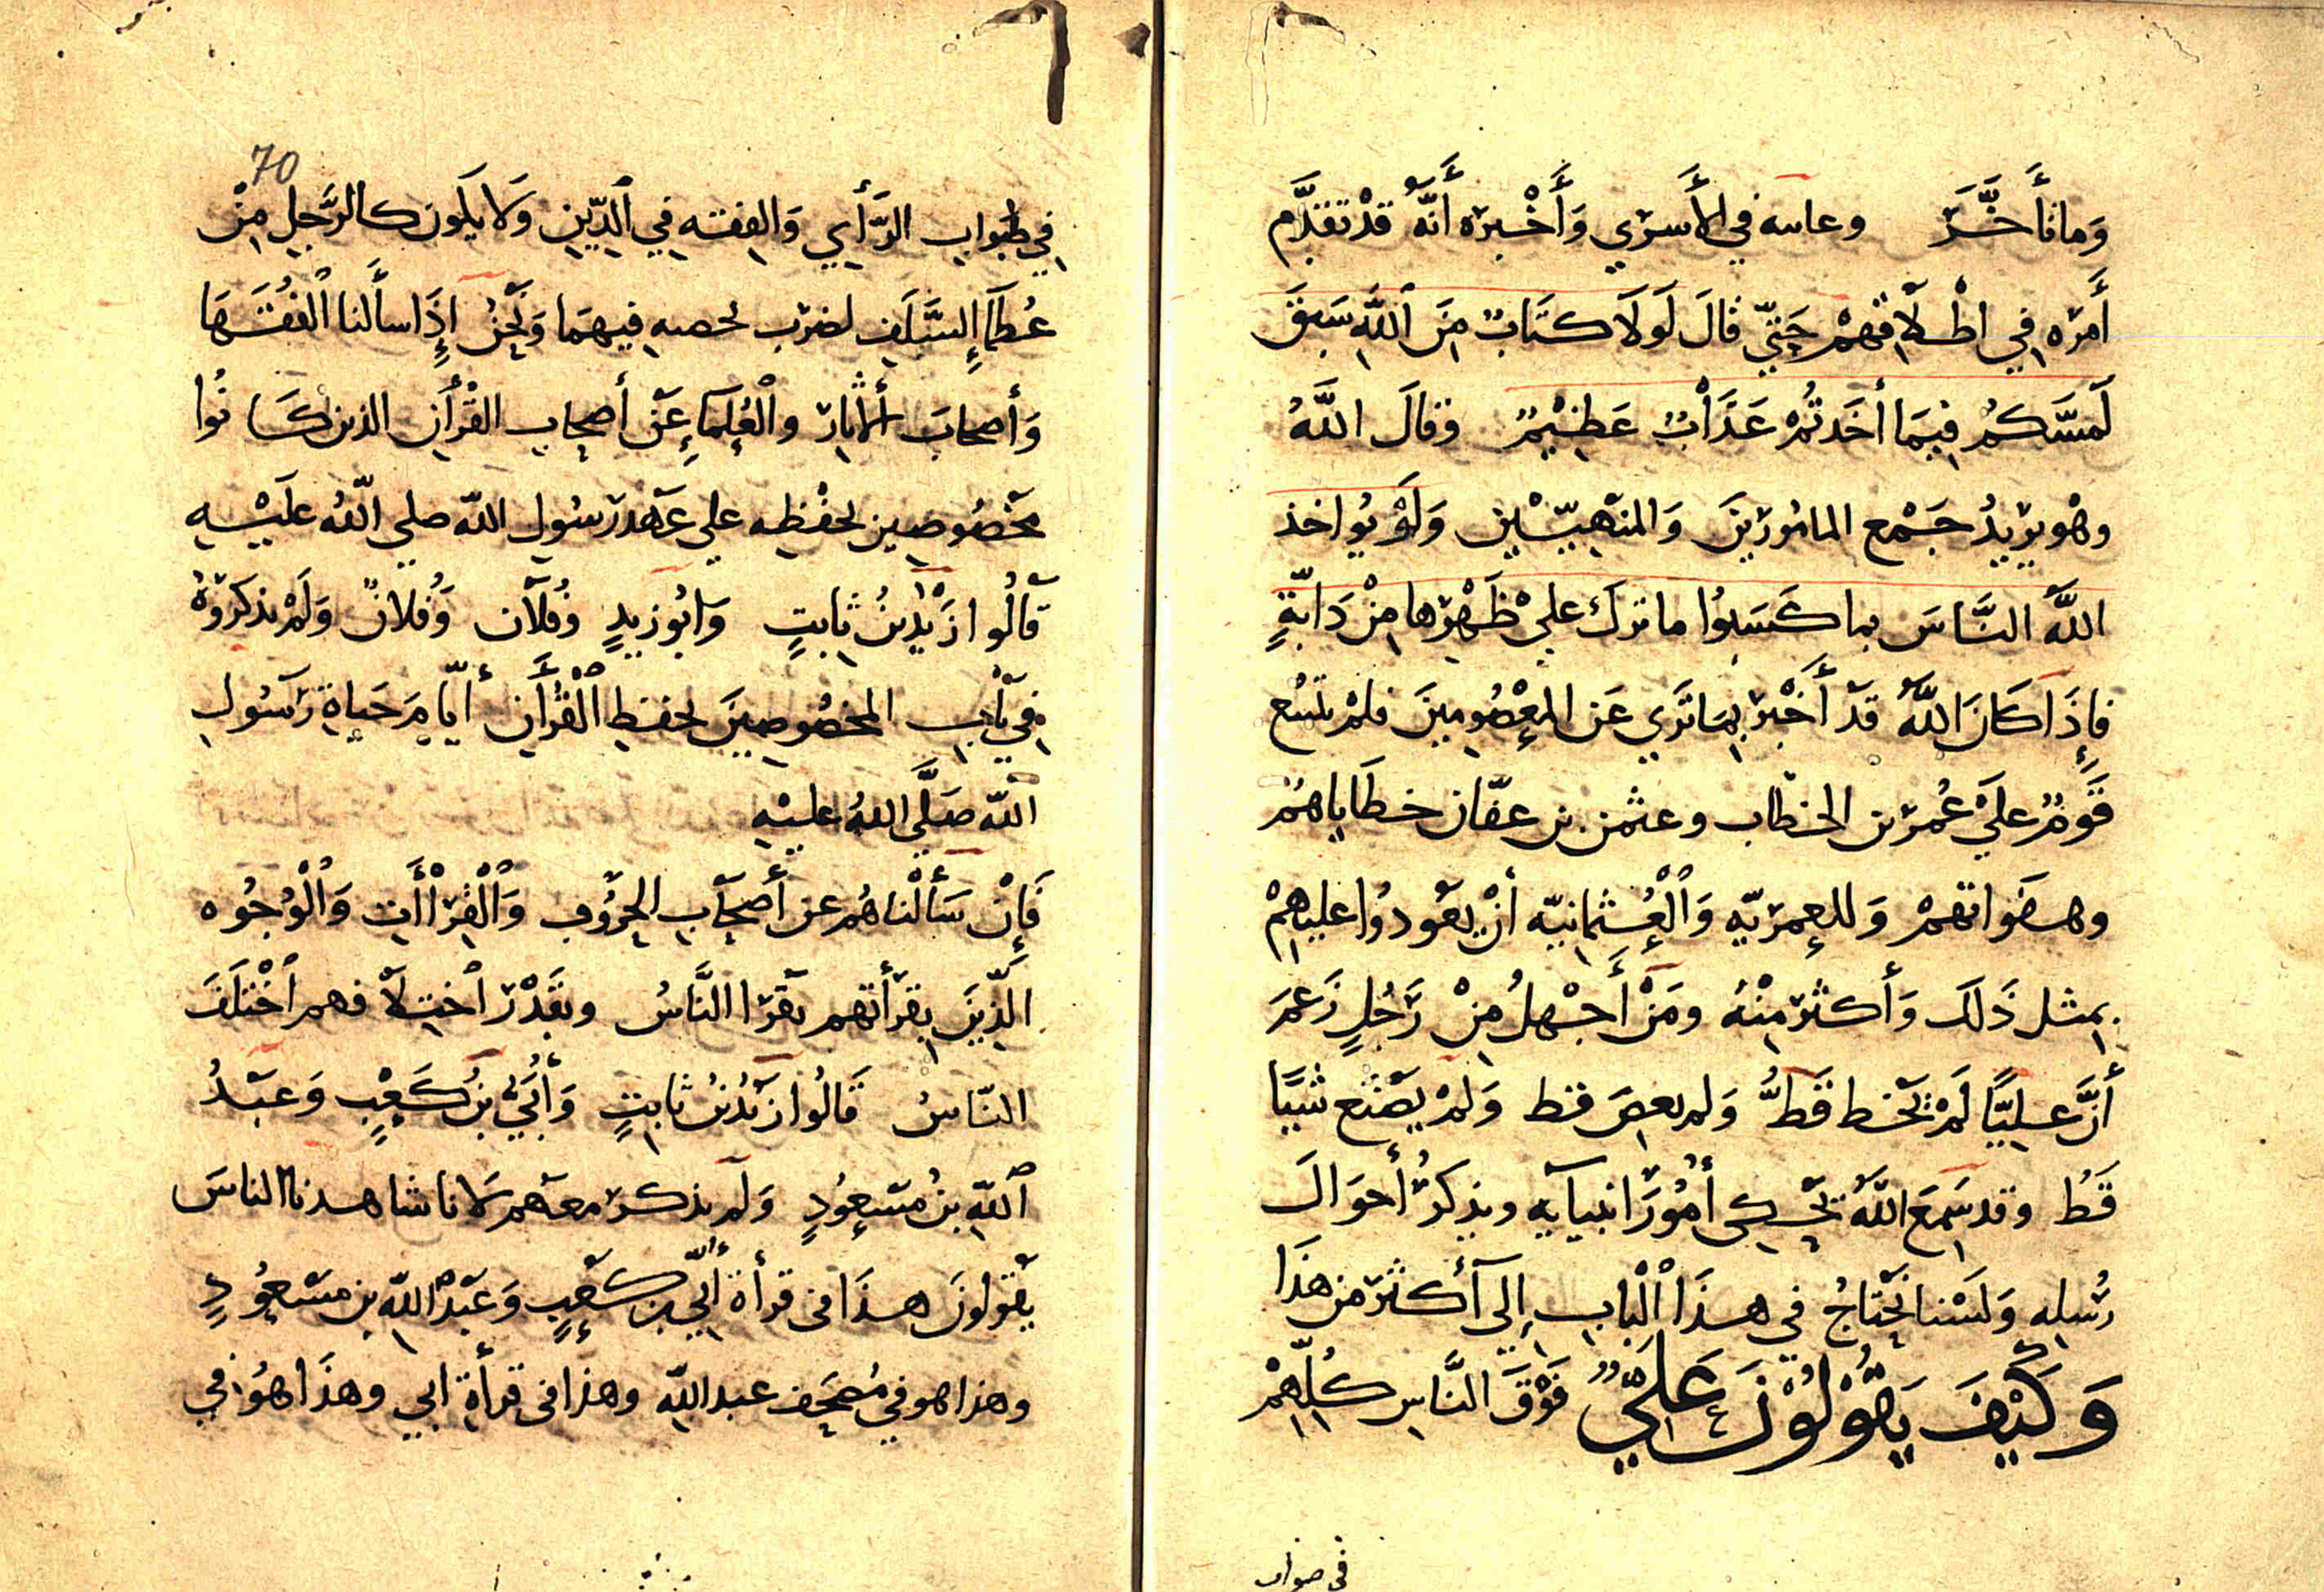 وَمَا تَأَخَّرَ وعاتبه في الأَسْرَي وَأَخْبَره أَنَّهُ قَدْ تقَدَّم
أَمْرَه في اطْلَاقهمْ حَتّي قالَ لَوْلَا كتَابٌ مِنَ اللَّهِ سَبَقَ
لَمسَّكمُ فيمَا أخَذتُمْ عَذَابٌ عَظِيْمٌ وقالَ اللَّهُ
وهْو يرِيدُ جَمْع المامُورِينَ وَالمنهِيّيْن وَلَوْ يُواخذ
اللَّهُ النَّاسَ بما كَسَبوُا ما ترك علي ظَهْرها مِنْ دَابّةٍ
فإِذَا كَانَ اللَّهُ قَد أَخْبَر بمَا تَرَي عَن المعْصُومِينَ فلمْ يتبع
قَومٌ علَي عُمَر بن الخطّاب وعثمن بن عفّان خطَاياهُمْ
وهفَواتهمْ وَللعمرِيّه وَالْعُثمانِيّه أنْ يعُودُوا عليهِمْ
بمثل ذَلكَ وَأكثر مِنْهُ ومَنْ أَجْهلُ مِنْ رَجُلٍ زَعمَ
أنَّ علِيًّا لَمْ يخْط قَطُّ وَلم يعصِ قط وَلمْ يصْنَع شيًا
قَطُ وقد سَمِعَ اللَّهَ يَحْكي أمُورَ انبيآيه ويذكرُ أحوَالَ
رُسُلِه وَلسْنا نَحْتَاجُ في هذَا الْبَابِ إلي أكثَر من هذَا
وَكَيْفَ يَقُوْلُوْنَ عَلِيٌّ فَوْقَ النَّاسِ كلِّهِمْ
في صواب
70
في صَوَاب الرَّأْي وَالفقه في الدِّينِ وَلَا يكون كالرَّجلِ مِنْ
عُظمَآءِ السَّلَفِ فيهمَا وَنَحْنُ إِذَا سألنا الفُقَهَا
وَأصحابَ الآثار والْعُلَمَآءِ عَنْ أصحاب القُرْآنِ الذين كَانُوا
مخْصُوصين بحفْظِه علي عَهْد رَسُولِ اللّه صلي اللّهُ عَلَيْهِ
قالُوا زَيْدُ بنُ ثابتٍ وَابُو زيدٍ وَفُلَان وَفُلانٌ وَلَمْ يذكرُوهُ
في بَاب المخصُوصِينَ بحفظِ الْقُرْأَنِ أيّامَ حَياةِ رَسُولِ
اللّه صَلَّي اللهُ علَيْهِ
فَإِنْ سَأَلْناهُم عن أصحَابِ الحرُوفِ وَالْقِرَاآتِ وَالْوُجُوه
الّذِينَ بقرأتهم يقرَا النَّاسُ وبقَدْر اختِلَافهم اخْتلَفَ
النّاسُ قَالُوا زَيْدُ بْنُ ثابتٍ وَأُبَيُّ بنُ كَعْبٍ وَعَبْدُ
اللّهِ بنُ مَسْعُودٍ وَلَم يذكر معَهم لَانا شاهدنا الناسَ
يَقولونَ هذَا في قرأة أبيّ بن كعْبٍ وَعَبْد اللّهِ بن مسْعُودٍ
وهذا هو في مُصحَف عبد اللّه وهذا في قرأة ابي وهذَا هُو في